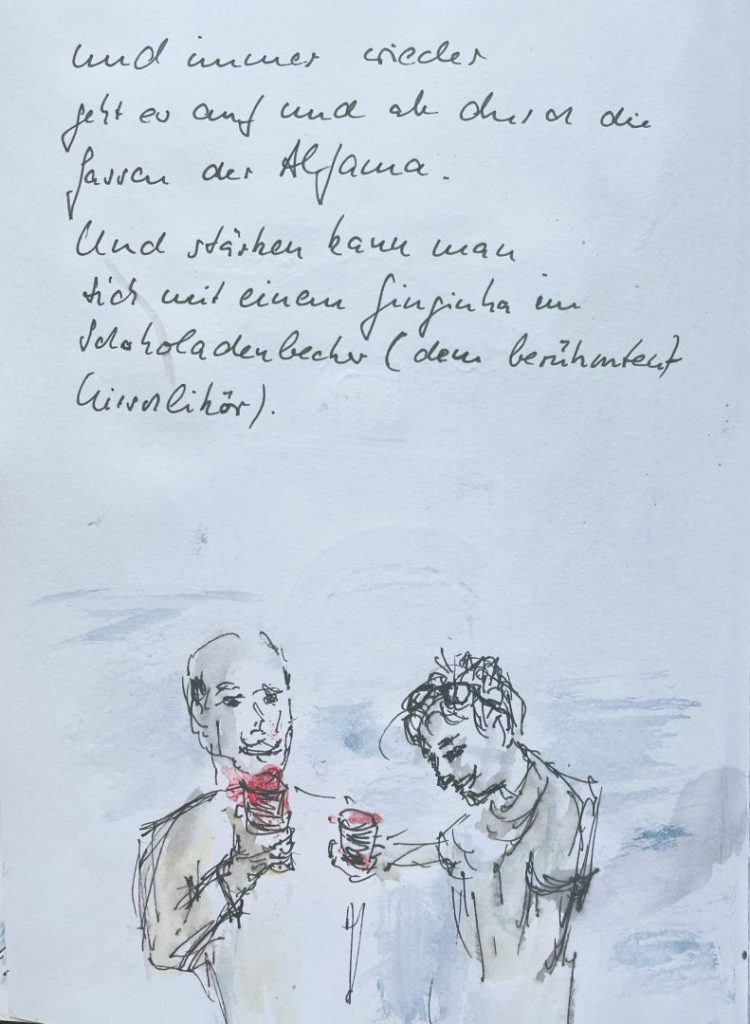 und immer wieder
geht es auf und ab durch die
Gassen der Alfama.
Und stärken kann man
sich mit einem Ginginha im
Schokoladenbecher (dem berühmten
Kirschlikör).